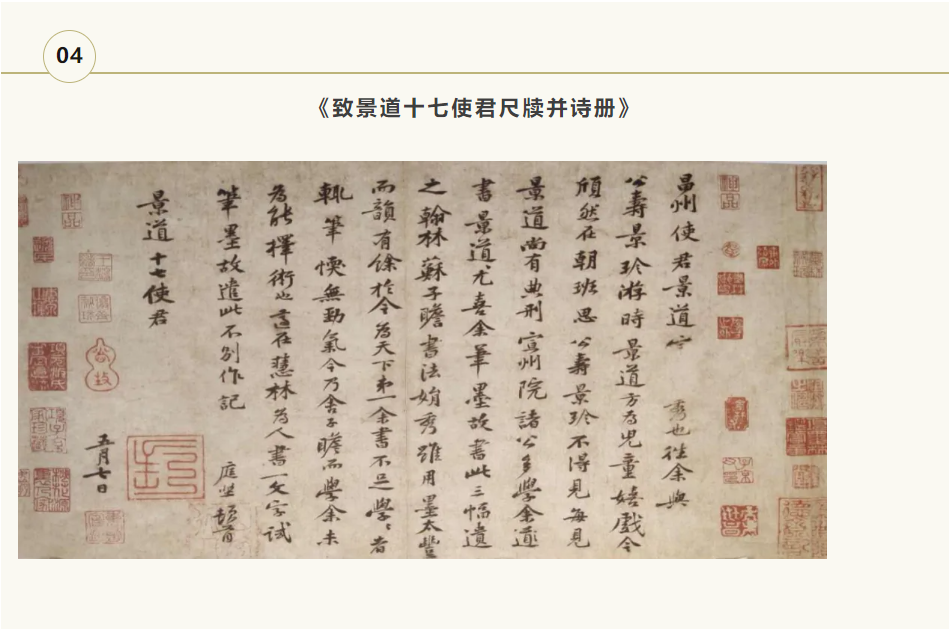 04
《致景道十七使君尺牍并诗册》
昌州使君景道宗秀也往余與
公壽景珍游時景道方為兒童嬉戲今
頎然在朝班思公壽景珍不得見每見
景道尚有典刑宣州院諸公多學余道
書景道尤喜余筆墨故書此三幅遺
之翰林蘇子瞻書法娟秀雖用墨太豐
而韻有餘於今為天下第一余書不足學學者
輒筆愞無勁氣今乃舍子瞻而學余未
為能擇術也適在慧林為人書一文字試
筆墨故遣此不別作記庭堅頓首
景道十七使君
五月七日